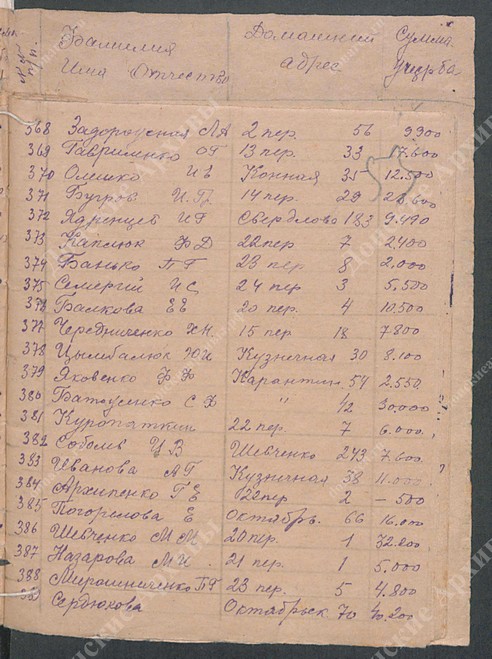 № п/п. Фамилия Имя Отчество Домашний адрес Сумма ущерба
368 Задорожная ЛА 2 пер. 56 3300
369 Гавриленко ОГ 13 пер. 33 7.600
370 Олешко И Конная 35 12.500
371 Бугров И.П. 14 пер. 29
372 ИГ Свердлова 183 9.490
373 Каплюк ФД 22 пер. 7 2400
374 Банько ПГ 23 пер. 8 2.000
375 Семергий И 24 пер. 3 5.500
376 Балкова ЕЕ 20 пер. 4 10.500
377 Чередниченко ХН 15 пер. 18 7800
378 Цымбалюк Кузничная 30 8.100
379 Яковенко ФФ Карантин 54 2.550
380 С Ф " 12 30.000
381 Куропаткин 22 пер. 7 6.000
382 Соболь ЦВ Шевченко 243 7.600
383 Иванова АГ Кузничная 58 11.000
384 Архипенко ГЕ 22 пер 2 – 500
385 Погорелова Е Октябрь. 66 16.000
386 Шевченко М М 20 пер. 1
387 Назарова М И 21 пер. 1 5.000
388 Мирошниченко ПГ 23 пер. 5 4.800
389 Сердюкова Октябрьск 70